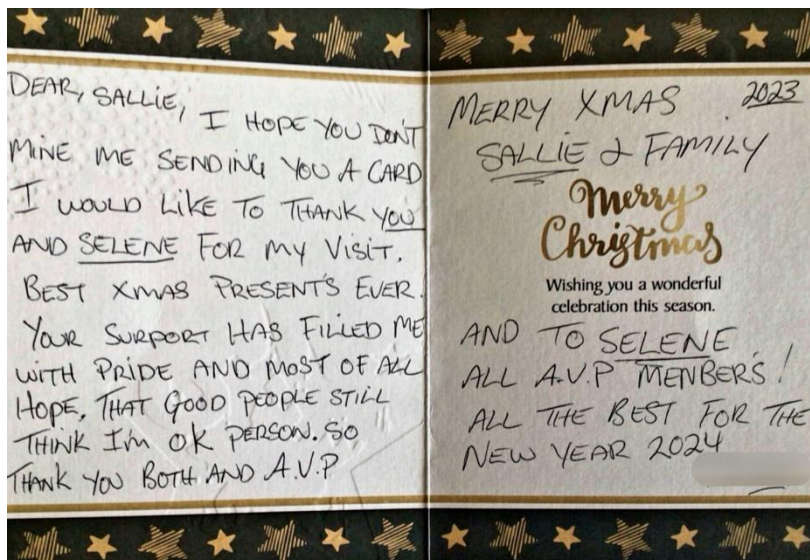 DEAR, SALLIE,
I HOPE YOU DON'T
MINE ME SENDING YOU A CARD
I WOULD LIKE TO THANK YOU
AND SELENE FOR MY VISIT.
BEST XMAS PRESENT'S EVER.
YOUR SUPPORT HAS FILLED ME
WITH PRIDE AND MOST OF ALL
HOPE, THAT GOOD PEOPLE STILL
THINK I'M OK PERSON. SO
THANK YOU BOTH AND A.V.P
2023
MERRY XMAS
SALLIE & FAMILY
Merry
Christmas
Wishing you a wonderful
celebration this season.
AND TO SELENE,
ALL A.V.P MENBER'S!
ALL THE BEST FOR THE
NEW YEAR 2024